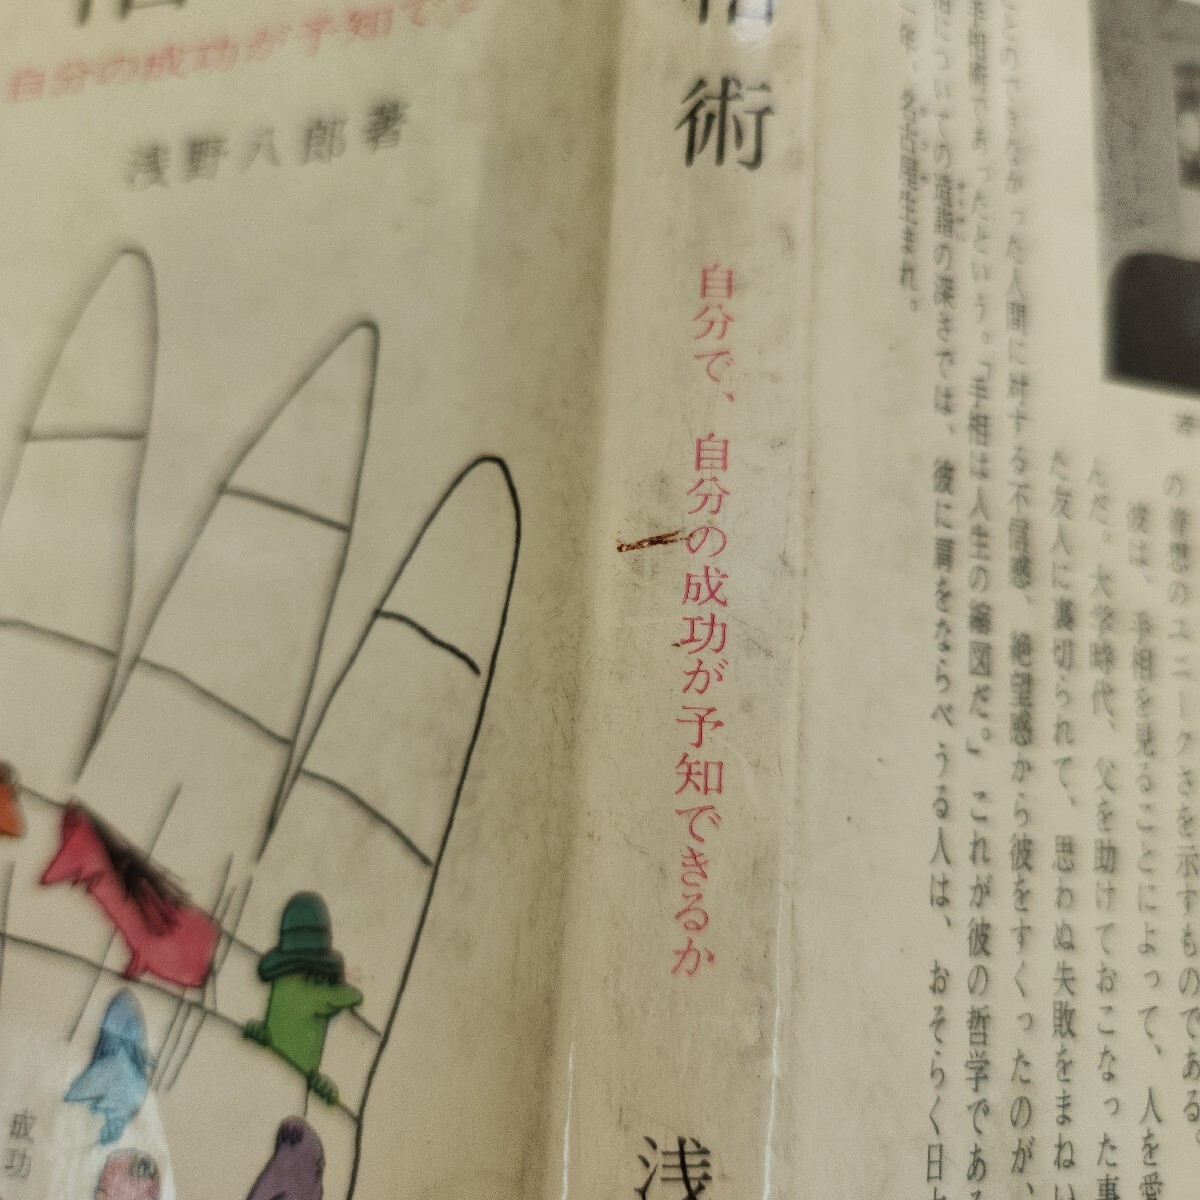 自分の成功が予知でき
浅野八郎著
成功
術
自分で、自分の成功が予知できるか
浅
の着想のユニークさを示すものである。
彼は 手相を見ることによって、人を愛
んだ。大学時代、父を助けておこなった事
た友人に裏切られて、思わぬ失敗をまねい
ことのできなかった人間に対する不信感、絶望感から彼をすくったのが、
手相術であったという。「手相は人生の縮図だ。」これが彼の哲学である
についての造詣の深さでは、彼に肩をならべうる人は、おそらく日
年、名古屋生まれ。